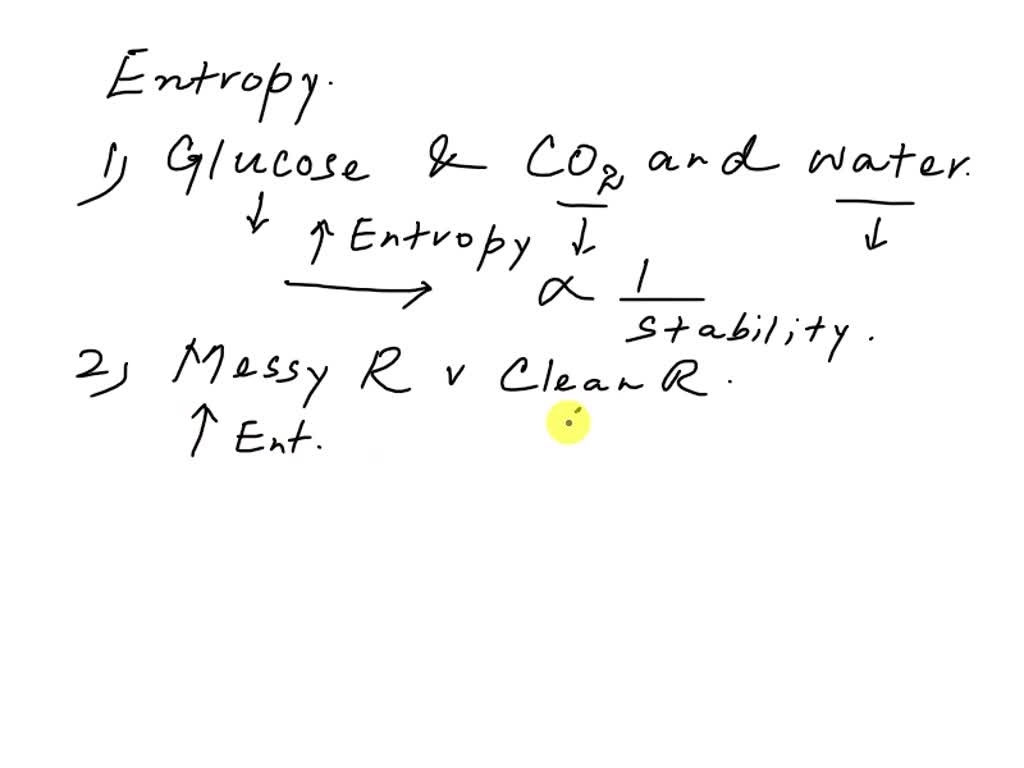 Entropy.
1) Glucose & CO2 and water.
↓ ↑ Entropy ↓ ↓
→ ∝ 1/stability.
2) Messy R v Clean R.
↑ Ent.